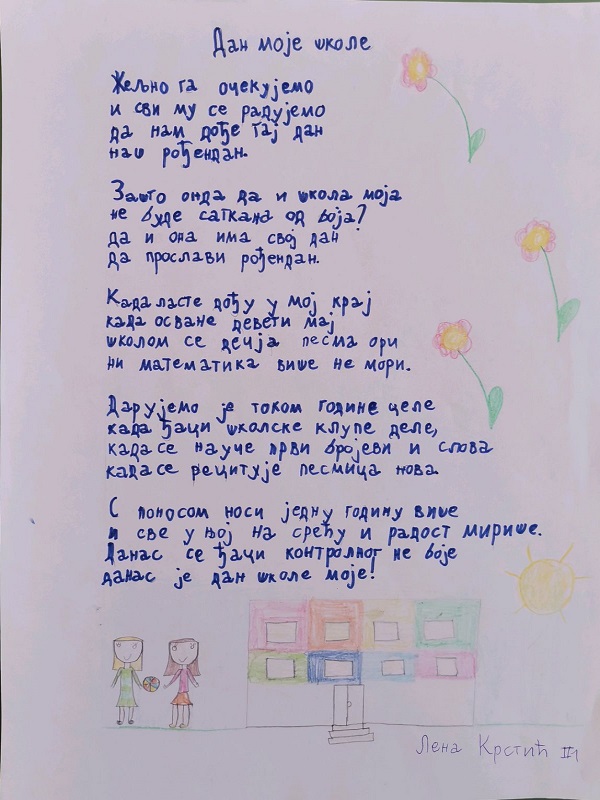 Дан моје школе
Жељно га очекујемо
и сви му се радујемо
да нам дође тај дан
наш рођендан.
Зашто онда да и школа моја
не буде саткана од боја?
да и она има свој дан
да прослави рођендан.
Када ласте дођу у мој крај
када осване девети мај
школом се дечја песма ори
ни математика више не мори.
Дарујемо је током године целе
када ђаци школске клупе деле,
када се науче први бројеви и слова
када се рецитује песмица нова.
С поносом носи једну годину више
и све у њој на срећу и радост мирише.
Данас се ђаци контролног не боје
данас је дан школе моје!
Лена Крстић III1